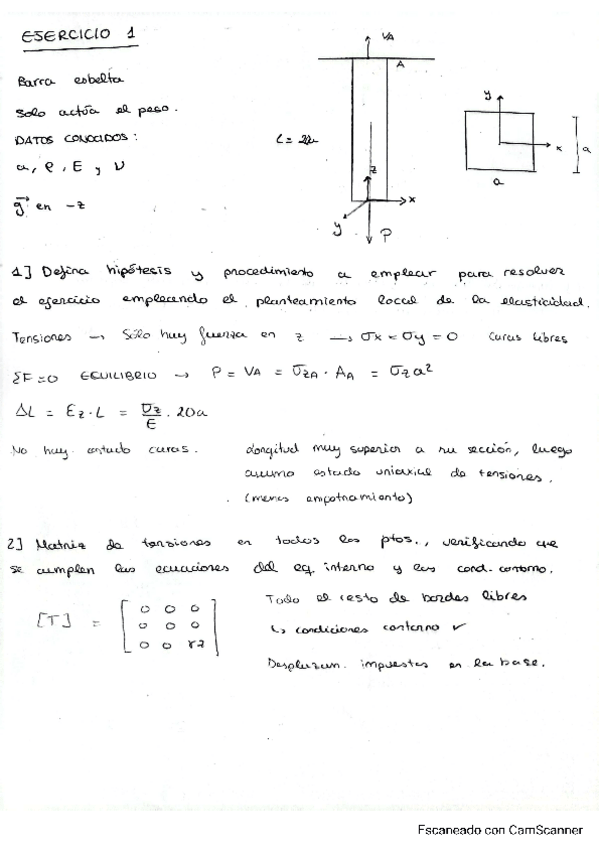 EJERCICIO 1
Barra esbelta
Solo actúa el peso.
DATOS CONOCIDOS:
a, ρ, E y ν
g⃗ en -z
VA
A
L = 20a
z
x
y
P
y
x
a
a
1] Defina hipótesis y procedimiento a emplear para resolver
el ejercicio empleando el planteamiento local de la elasticidad.
Tensiones → Sólo hay fuerza en z → σx = σy = 0 caras libres
ΣF = 0 EQUILIBRIO → P = VA = σzA · AA = σz a²
ΔL = Ez · L = σz/E · 20a
No hay caras.
Longitud muy superior a su sección, luego
asumo estado uniaxial de tensiones.
(menos empotramiento)
2] Matriz de tensiones en todos los ptos., verificando que
se cumplen las ecuaciones del eq. interno y las cond. contorno.
[T] = [0 0 0
0 0 0
0 0 σz]
Todo el resto de bordes libres
↳ condiciones contorno ✓
Desplazam. impuestos en la base.
Escaneado con CamScanner